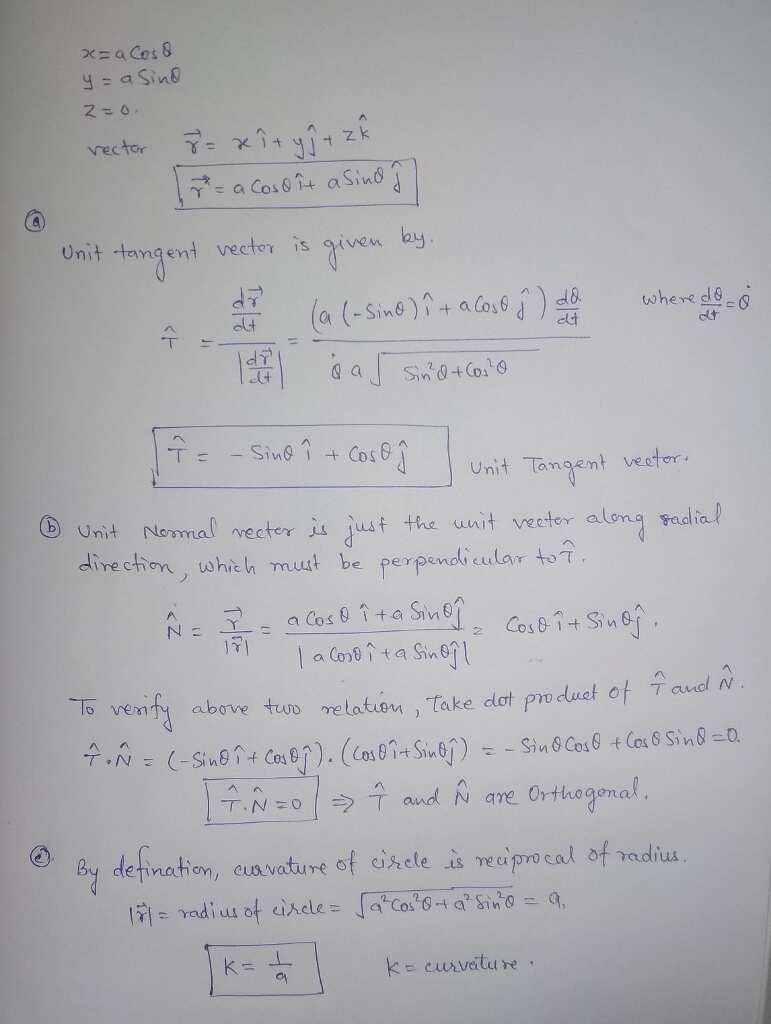 x = a Cosθ
y = a Sinθ
z = 0.
vector r⃗ = x î + y ĵ + z k̂
r⃗ = a Cosθ î + a Sinθ ĵ
(a)
Unit tangent vector is given by.
T̂ = (dr⃗/dt) / |dr⃗/dt| = (a (-Sinθ) î + a Cosθ ĵ) dθ/dt / θ̇ a √(Sin²θ + Cos²θ) where dθ/dt = θ̇
T̂ = - Sinθ î + Cosθ ĵ Unit Tangent vector.
(b) Unit Normal vector is just the unit vector along radial
direction, which must be perpendicular to T̂.
N̂ = r⃗/|r⃗| = (a Cosθ î + a Sinθ ĵ) / |a Cosθ î + a Sinθ ĵ| = Cosθ î + Sinθ ĵ.
To verify above two relation, Take dot product of T̂ and N̂.
T̂.N̂ = (-Sinθ î + Cosθ ĵ).(Cosθ î + Sinθ ĵ) = - Sinθ Cosθ + Cosθ Sinθ = 0.
T̂.N̂ = 0 ⇒ T̂ and N̂ are Orthogonal.
(c). By defination, curvature of circle is reciprocal of radius.
|r⃗| = radius of circle = √(a²Cos²θ + a²Sin²θ) = a,
K = 1/a K = curvature.